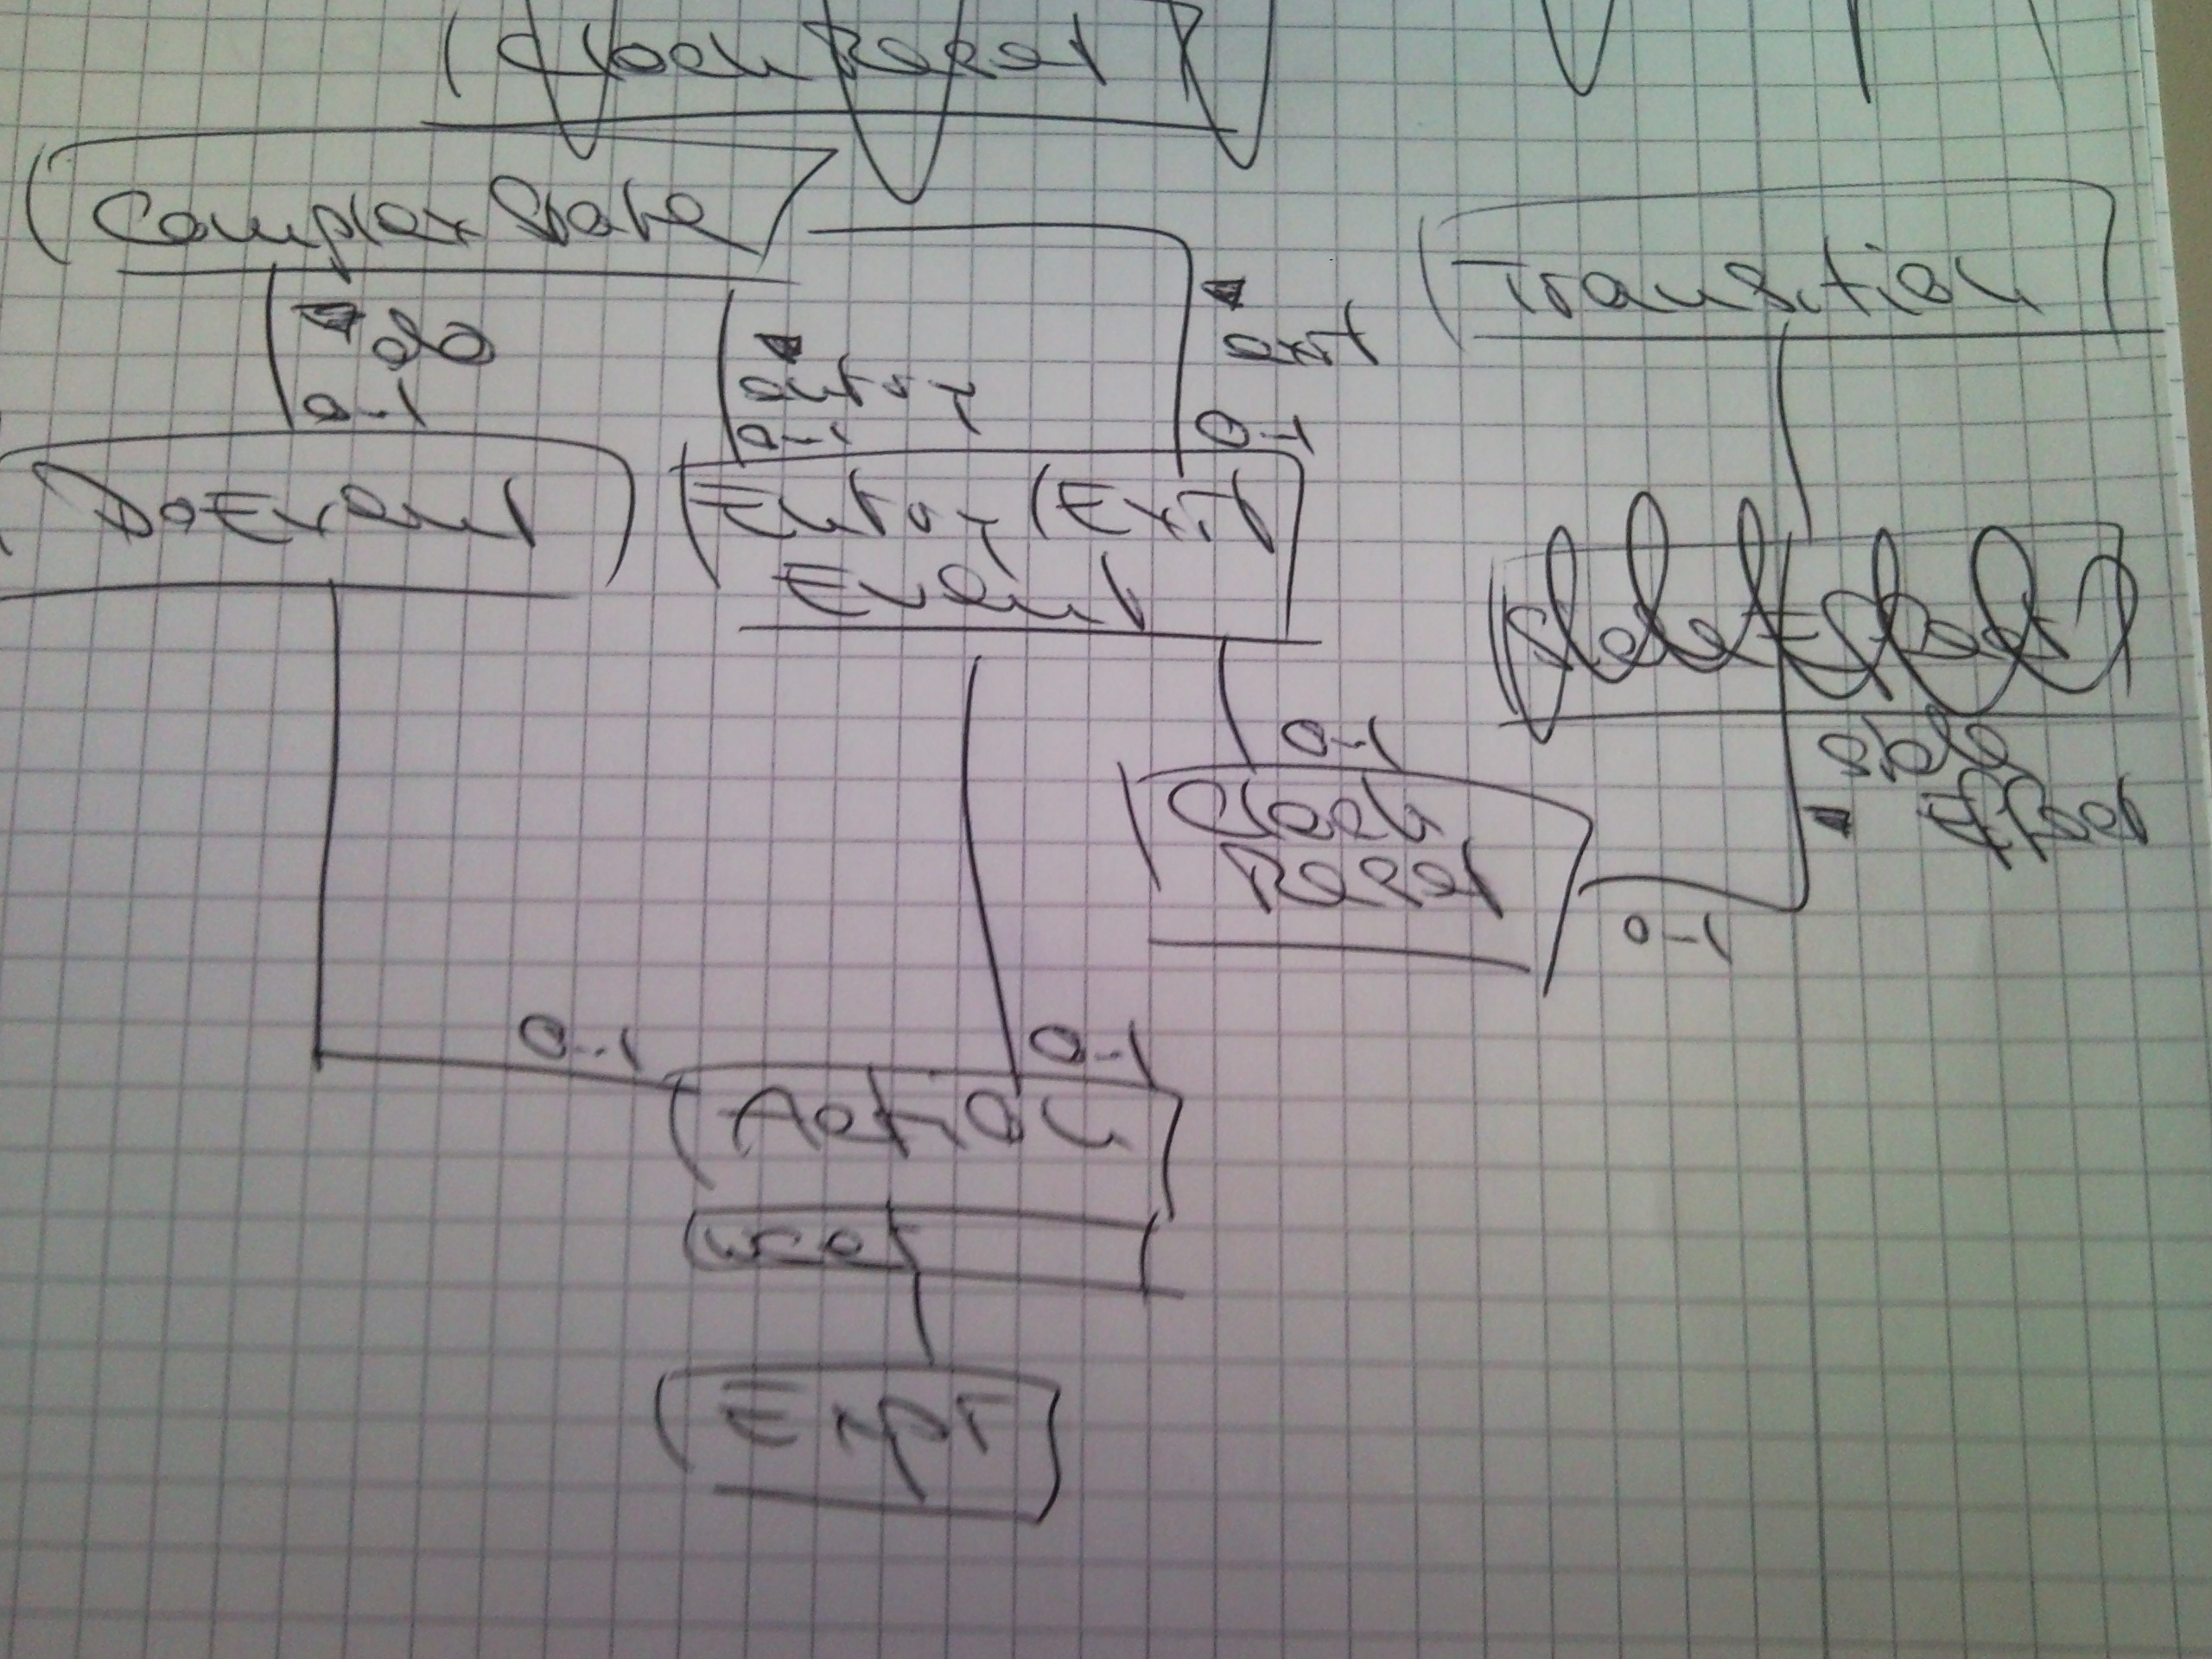 Clock Reset
Complex State
Transition
do
0..1
entry
0..1
exit
0..1
DoEvent
Entry/Exit
Event
Side
Effect
0..1
Clock
Reset
0..1
0..1
0..1
Action
Expr